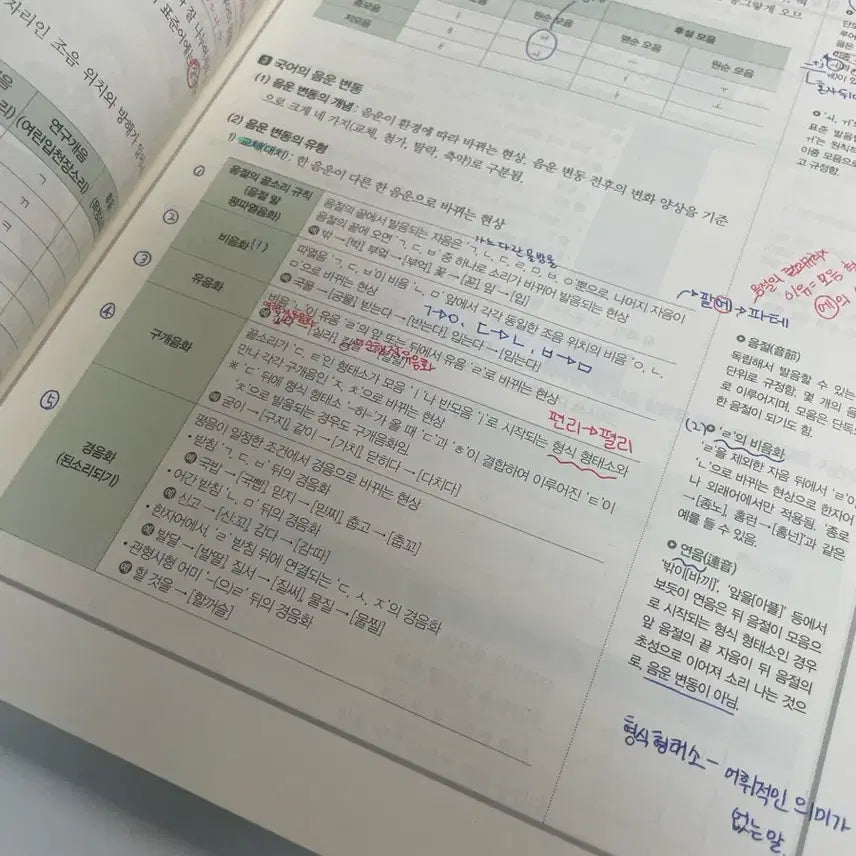 자리인 조음 위치와 방해가
표준어에
연구개음
(여린입천장소리)
ㄱ
ㄲ
ㅋ
중모음
저모음
원순 모음
후설 모음
평순 모음
원순 모음
ㅡ
ㅜ
ㅓ
ㅗ
ㅏ
3 국어의 음운 변동
(1) 음운 변동의 개념 : 음운이 환경에 따라 바뀌는 현상. 음운 변동 전후의 변화 양상을 기준
으로 크게 네 가지(교체, 첨가, 탈락, 축약)로 구분됨.
(2) 음운 변동의 유형
1) 교체(대치) : 한 음운이 다른 한 음운으로 바뀌는 현상
①
음절의 끝소리 규칙
(음절 말
평파열음화)
음절의 끝에서 발음되는 자음은 'ㄱ, ㄴ, ㄷ, ㄹ, ㅁ, ㅂ, ㅇ'뿐으로 나머지 자음이
음절의 끝에 오면 'ㄱ, ㄷ, ㅂ' 중 하나로 소리가 바뀌어 발음되는 현상
예 밖 → [박], 부엌 → [부억], 꽃 → [꼳], 앞 → [압]
②
비음화
파열음 'ㄱ, ㄷ, ㅂ'이 비음 'ㄴ, ㅁ' 앞에서 각각 동일한 조음 위치의 비음 'ㅇ, ㄴ,
ㅁ'으로 바뀌는 현상
예 국물 → [궁물], 받는다 → [반는다], 입는다 → [임는다]
ㄱ→ㅇ, ㄷ→ㄴ, ㅂ→ㅁ
③
유음화
비음 'ㄴ'이 유음 'ㄹ'의 앞 또는 뒤에서 유음 'ㄹ'로 바뀌는 현상
편리→펼리
④
구개음화
끝소리가 'ㄷ, ㅌ'인 형태소가 모음 'ㅣ'나 반모음 'ㅣ'로 시작되는 형식 형태소와
만나 각각 구개음인 'ㅈ, ㅊ'으로 바뀌는 현상
※ 'ㄷ' 뒤에 형식 형태소 '-히-'가 올 때 'ㄷ'과 'ㅎ'이 결합하여 이루어진 'ㅌ'이
'ㅊ'으로 발음되는 경우도 구개음화임.
예 굳이 → [구지], 같이 → [가치], 닫히다 → [다치다]
⑤
경음화
(된소리되기)
평음이 일정한 조건에서 경음으로 바뀌는 현상
• 받침 'ㄱ, ㄷ, ㅂ' 뒤의 경음화
예 국밥 → [국빱], 믿지 → [믿찌], 춥고 → [춥꼬]
• 어간 받침 'ㄴ, ㅁ' 뒤의 경음화
예 신고 → [신ː꼬], 감다 → [감ː따]
• 한자어에서, 'ㄹ' 받침 뒤에 연결되는 'ㄷ, ㅅ, ㅈ'의 경음화
예 발달 → [발딸], 질서 → [질써], 물질 → [물찔]
• 관형사형 어미 '-(으)ㄹ' 뒤의 경음화
예 할 것을 → [할꺼슬]
→팥에→파테
음절(音節)
독립해서 발음할 수 있는
단위로 규정함. 몇 개의 음
로 이루어지며, 모음은 단독으
한 음절이 되기도 함.
(2) 'ㄹ'의 비음화
'ㄹ'을 제외한 자음 뒤에서 'ㄹ'이
'ㄴ'으로 바뀌는 현상으로 한자어
나 외래어에서만 적용됨. '종로
→[종노], 홀런→[홀넌]'과 같은
예를 들 수 있음.
연음(連音)
'밖이[바끼]', '앞을[아플]' 등에서
보듯이 연음은 뒤 음절이 모음으
로 시작되는 형식 형태소인 경우
앞 음절의 끝 자음이 뒤 음절의
초성으로 이어져 소리 나는 것으
로, 음운 변동이 아님.
형식형태소 – 어휘적인 의미가
없는말.